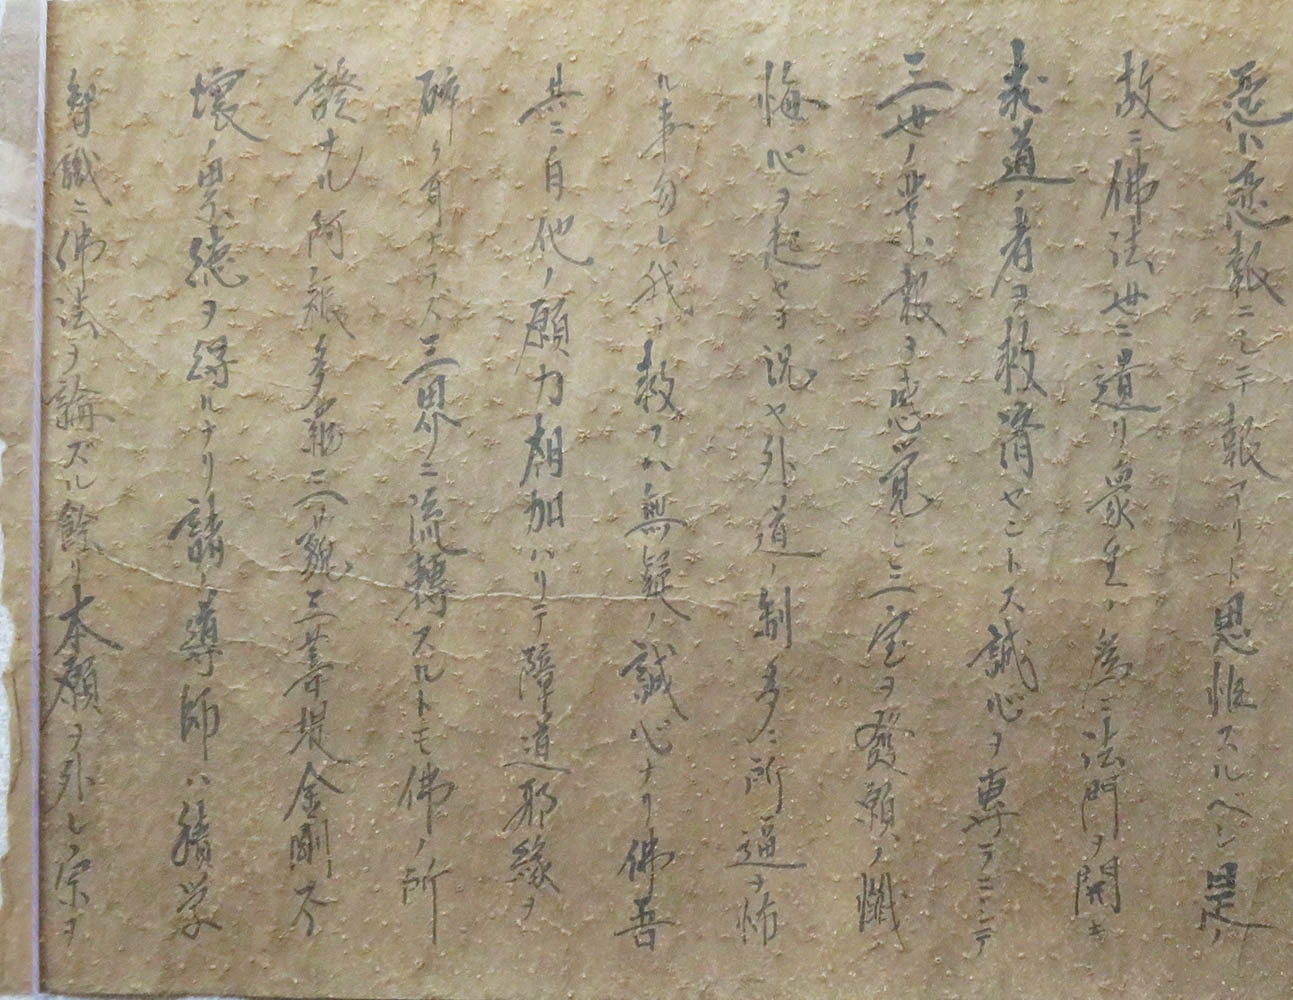 悪ハ悪報ニシテ報アリト思惟スルベシ是ノ
故ニ佛法世ニ遺リ衆生ノ為ニ法門ヲ開キ
求道ノ者ヲ救済セントス誠心ヲ専ラニシテ
三世ノ業報ヲ感覚シ三宝ヲ發願ノ懺
悔心ヲ起セ況ヤ外道ノ制多ニ所逼ヲ怖
ル事勿レ我ヲ救フハ無疑ノ誠心ナリ佛吾
共ニ自他ノ願力相加ハリテ障道邪縁ヲ
砕ク身ナラズ三界ニ流轉スルトモ佛ノ所
證ナル阿耨多羅三藐三菩提金剛不
壊ノ果徳ヲ得ルナリ諸ノ導師ハ積学
智識ニ佛法ヲ論ズル餘リ本願ヲ外レ宗ヲ